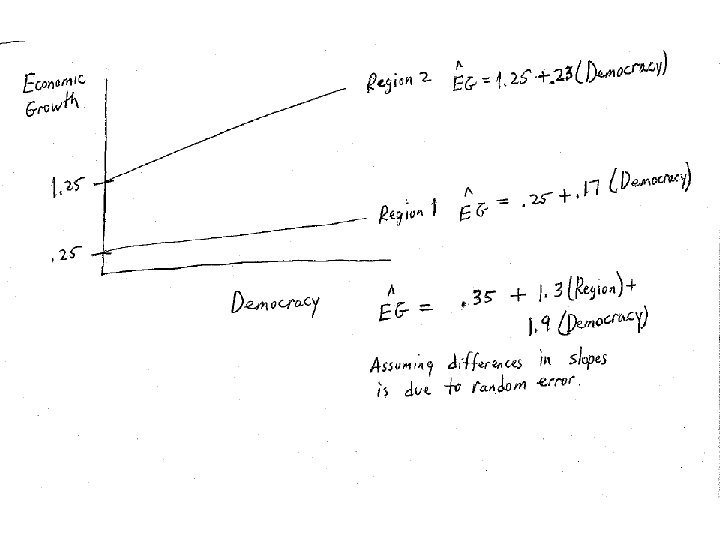 Economic
Growth
Region 2 ÊG = 1.25 + .23 (Democracy)
1.25
Region 1 ÊG = .25 + .17 (Democracy)
.25
Democracy
ÊG = .35 + 1.3 (Region) +
1.9 (Democracy)
Assuming differences in slopes
is due to random error.